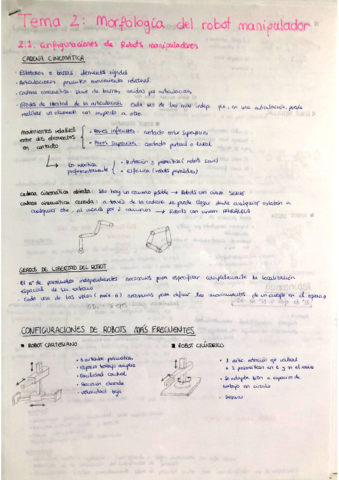 Tema 2: Morfología del robot manipulador
2.1. Configuraciones de Robots manipuladores
CADENA CINEMÁTICA
· Eslabones o barras: elementos rígidos
· Articulaciones: permiten movimiento relativo
· Cadena cinemática: serie de barras unidas por articulaciones
· Grados de libertad de la articulación: cada uno de los mov. indep. que, en una articulación, puede
realizar un elemento con respecto a otro.
movimientos relativos
entre dos elementos
en contacto
· Pares inferiores: contacto entre superficies
· Pares superiores: contacto puntual o lineal
En robótica
preferentemente
· Rotación y prismática (robots serie)
· Esférica (robots paralelos)
cadena cinemática abierta: sólo hay un camino posible → Robots con unión SERIE
cadena cinemática cerrada: a través de la cadena se puede llegar desde cualquier eslabón a
cualquier otro, al menos por 2 caminos → Robots con unión PARALELA
GRADOS DE LIBERTAD DEL ROBOT
El nº de parámetros independientes necesarios para especificar completamente la localización
espacial de su extremo
- Cada uno de los valores (máx 6) necesarios para definir los movimientos de un cuerpo en el espacio
CONFIGURACIONES DE ROBOTS MÁS FRECUENTES
ROBOT CARTESIANO
· 3 articulac. prismáticas
· espacio trabajo amplio
· Facilidad control
· Precisión elevada
· velocidad baja
ROBOT CILÍNDRICO
· 1 artic. rotación eje vertical
+ 2 prismáticas en z y en el radio
· Se adapta bien a espacios de
trabajo en círculo